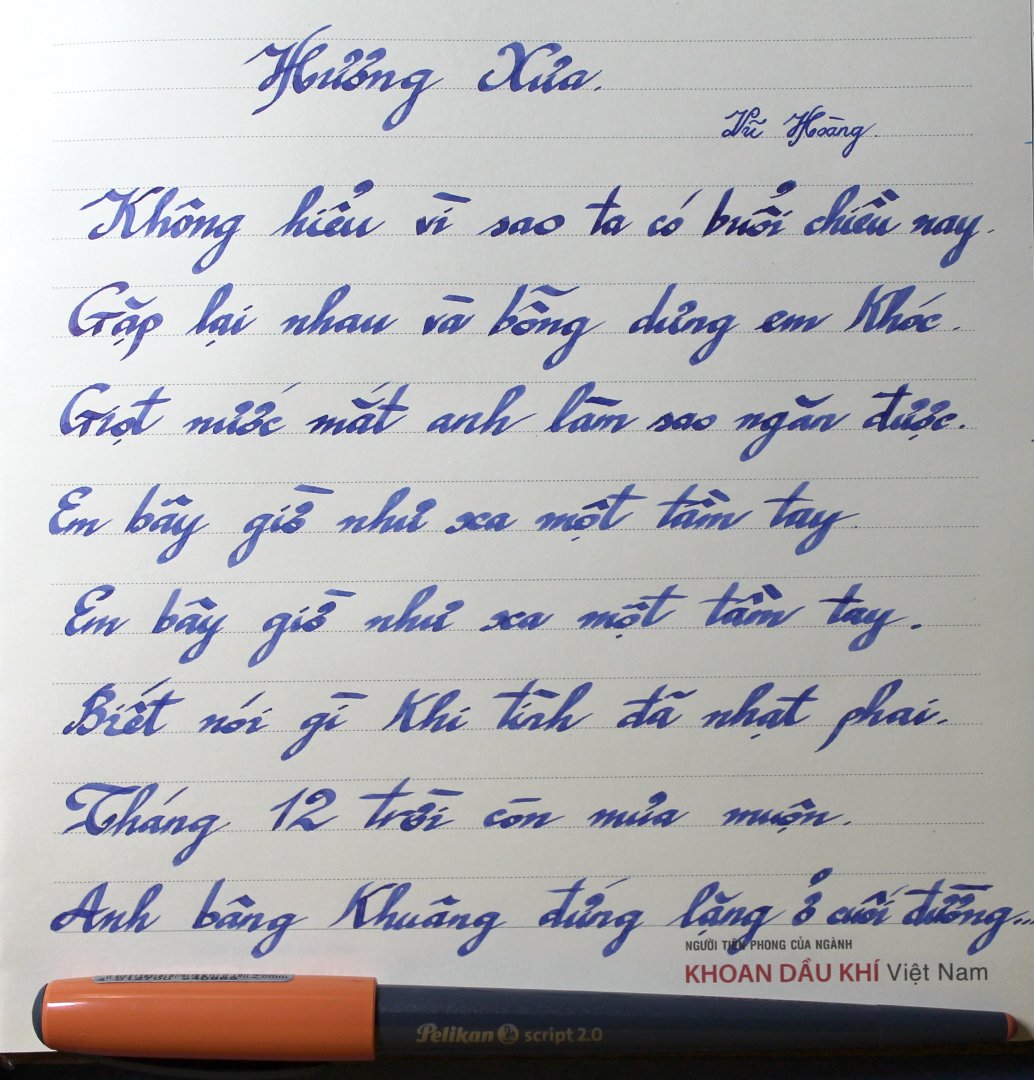 Hương Xưa.
Vũ Hoàng.
Không hiểu vì sao ta có buổi chiều nay.
Gặp lại nhau và bỗng dưng em khóc.
Giọt nước mắt anh làm sao ngăn được.
Em bây giờ như xa một tầm tay
Em bây giờ như xa một tầm tay.
Biết nói gì khi tình đã nhạt phai.
Tháng 12 trời còn mưa muộn.
Anh bâng khuâng đứng lặng ở cuối đường...
NGƯỜI TIÊN PHONG CỦA NGÀNH
KHOAN DẦU KHÍ Việt Nam
Pelikan script 2.0